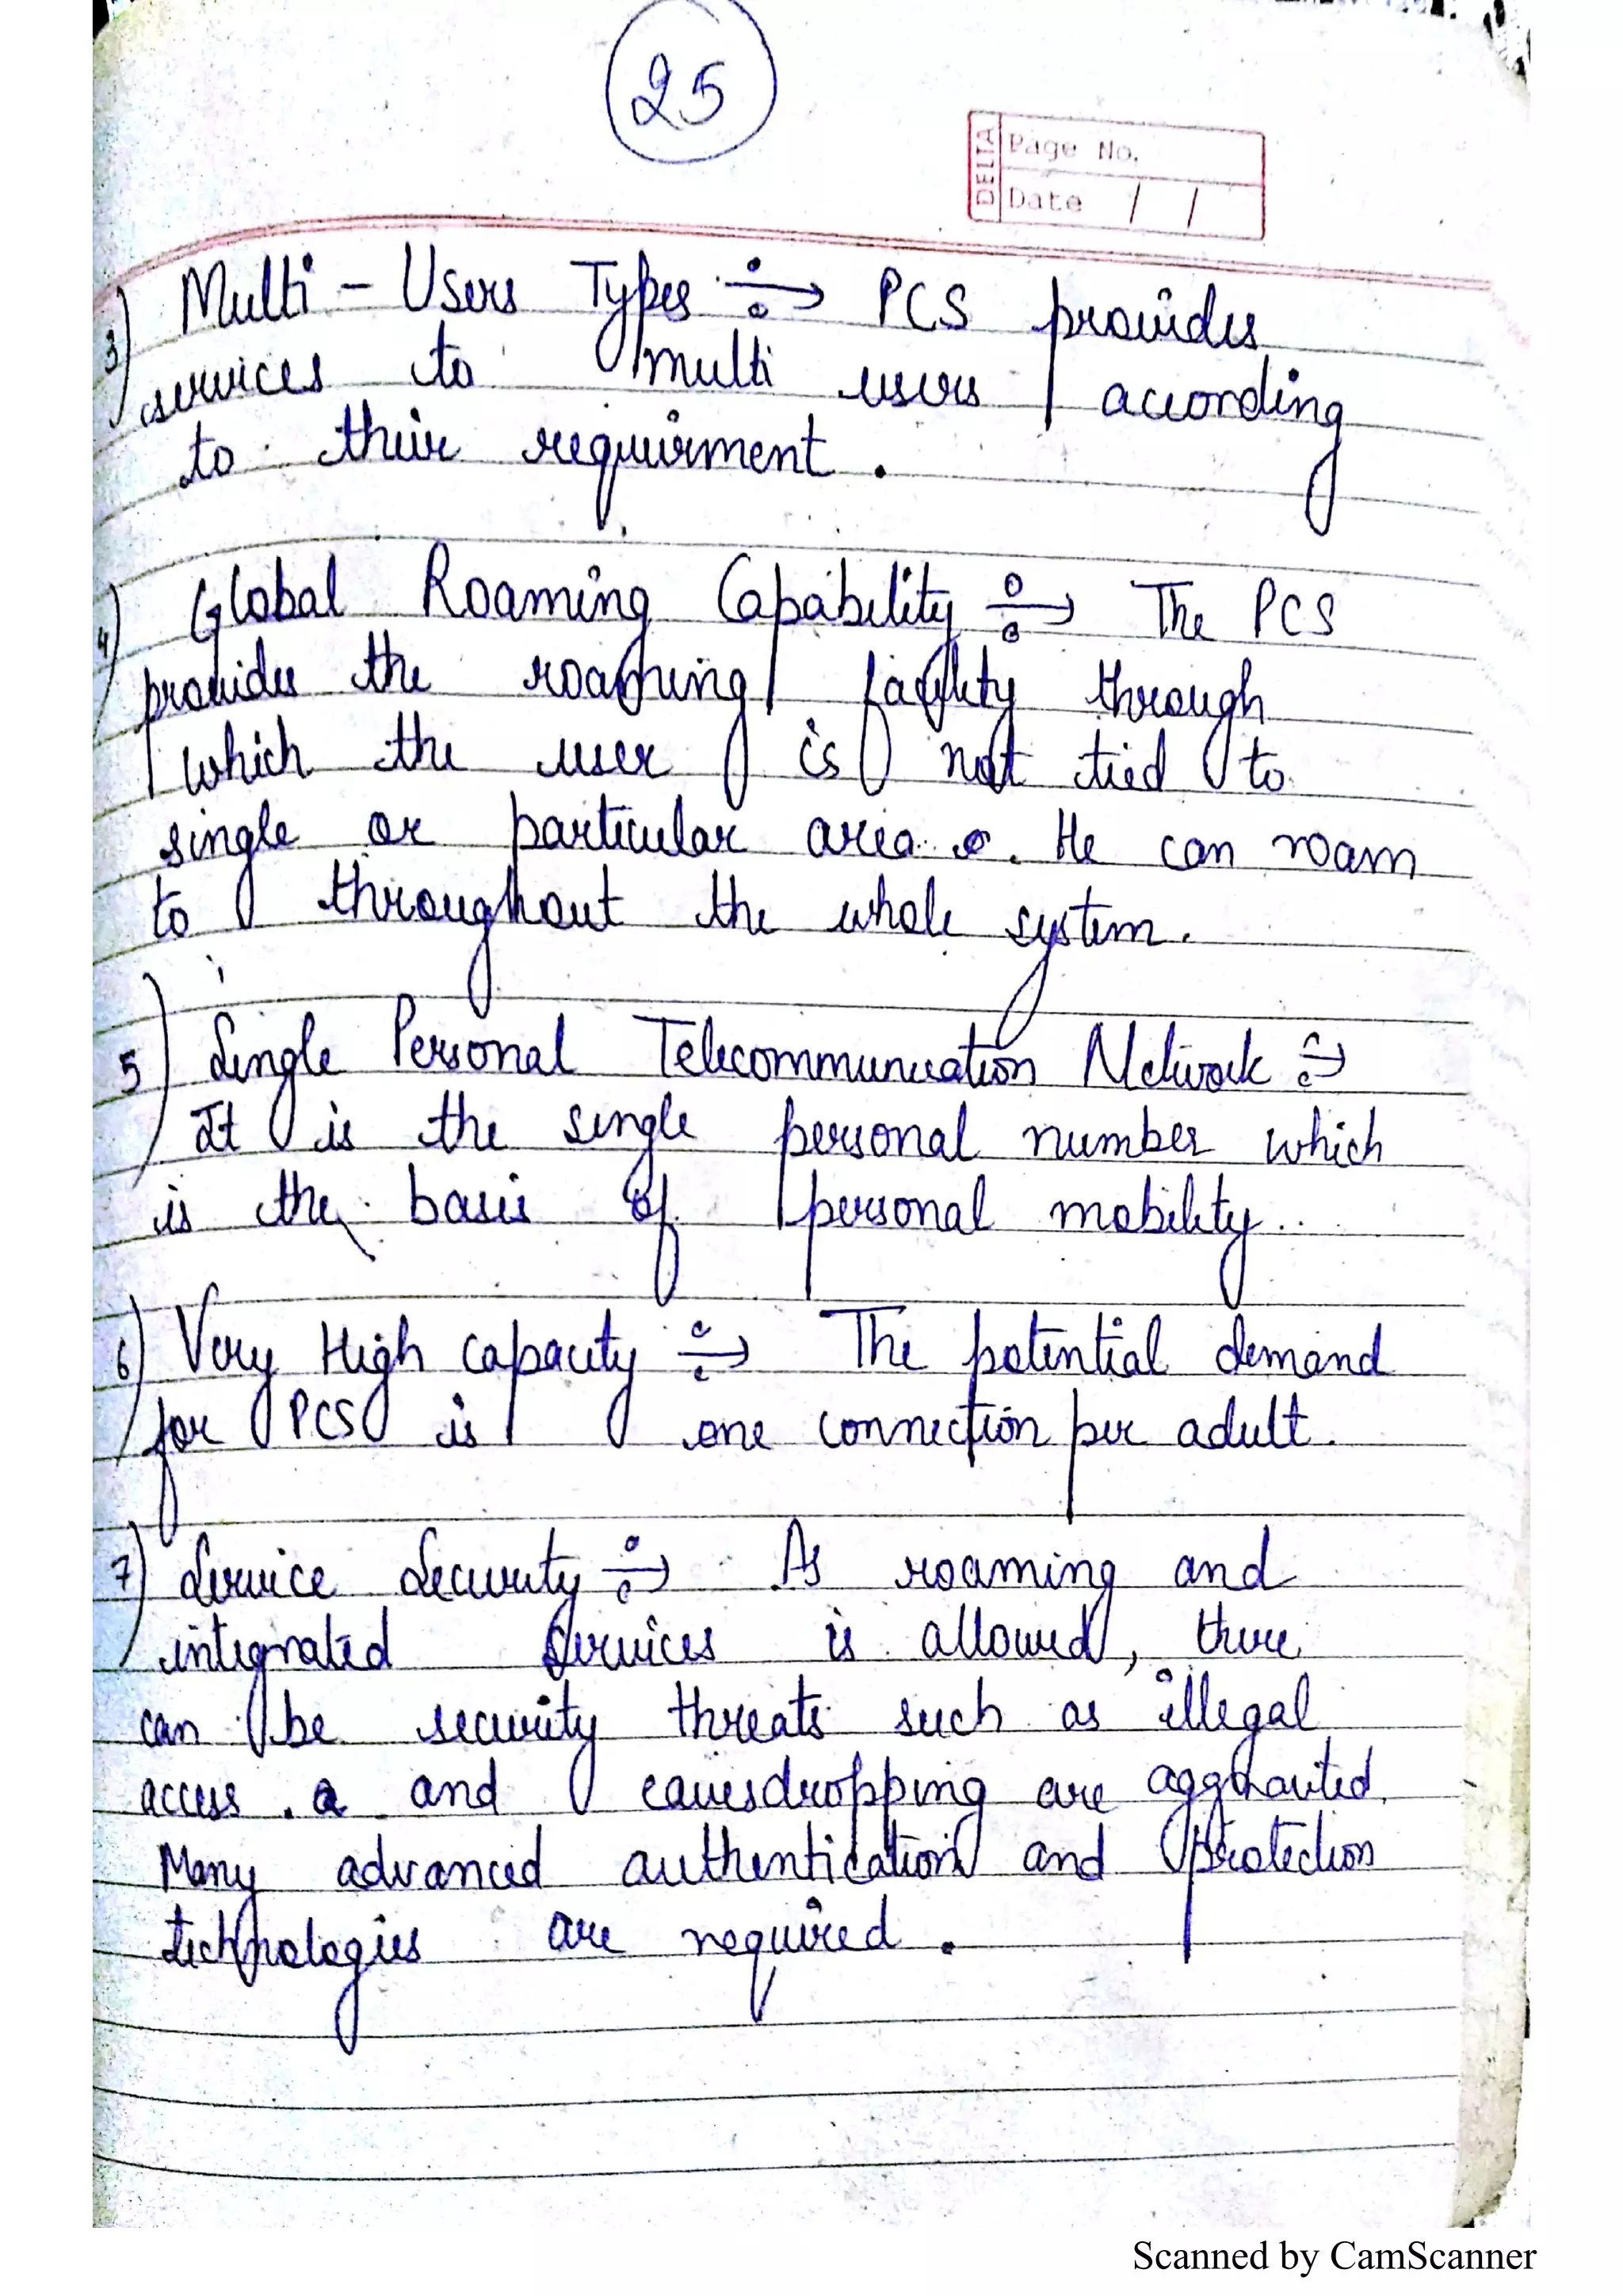 25
DELTA
Page No.
Date / /
3) Multi - Users Types ÷→ PCS provides
services to multi users according
to their requirment.
4) Global Roaming Capability ÷→ The PCS
provides the roaming facility through
which the user is not tied to
single or particular area. He can roam
to throughout the whole system.
5) Single Personal Telecommunication Network ÷→
It is the single personal number which
is the basis of personal mobility..
6) Very High capacity ÷→ The potential demand
for PCS is one connection per adult.
7) Service Security ÷→ As roaming and
integrated services is allowed, there
can be security threats such as illegal
access. a and eavesdropping are
Many advanced authentication and protection
technologies are required.
Scanned by CamScanner